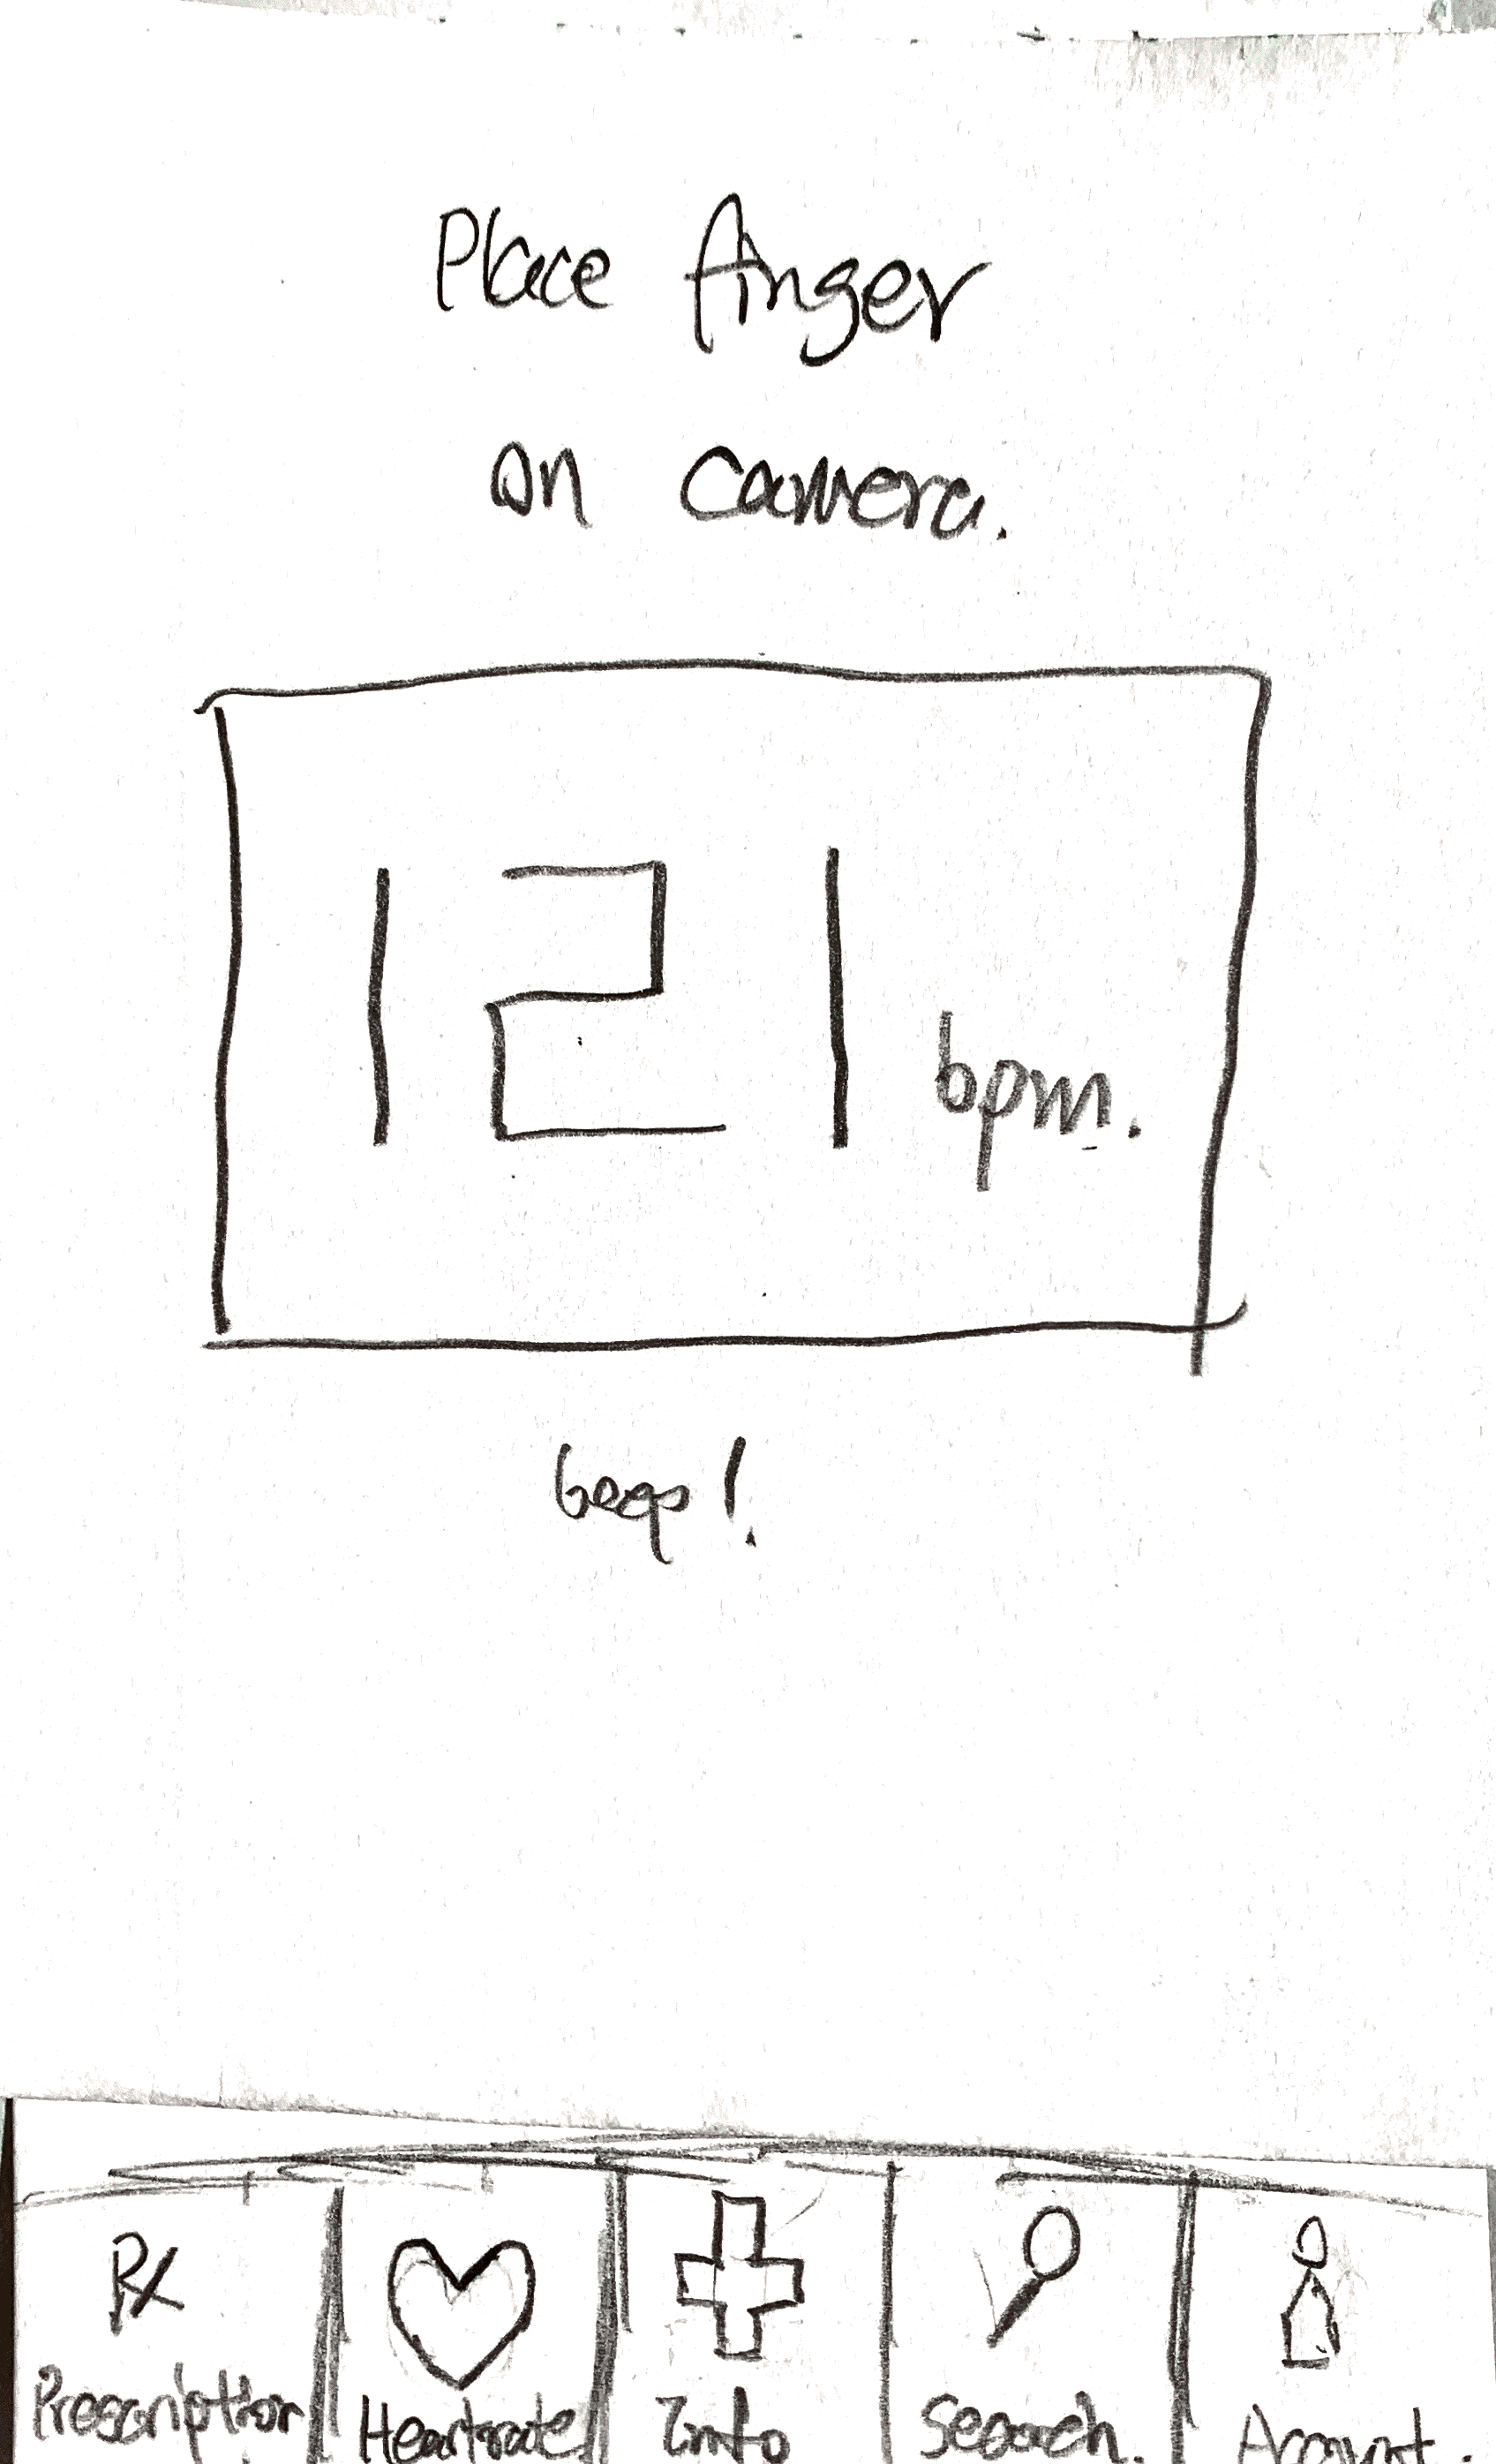 Place finger
on camera.
121 bpm.
beep!
Rx
Prescription Heartrate Info Search. Account.